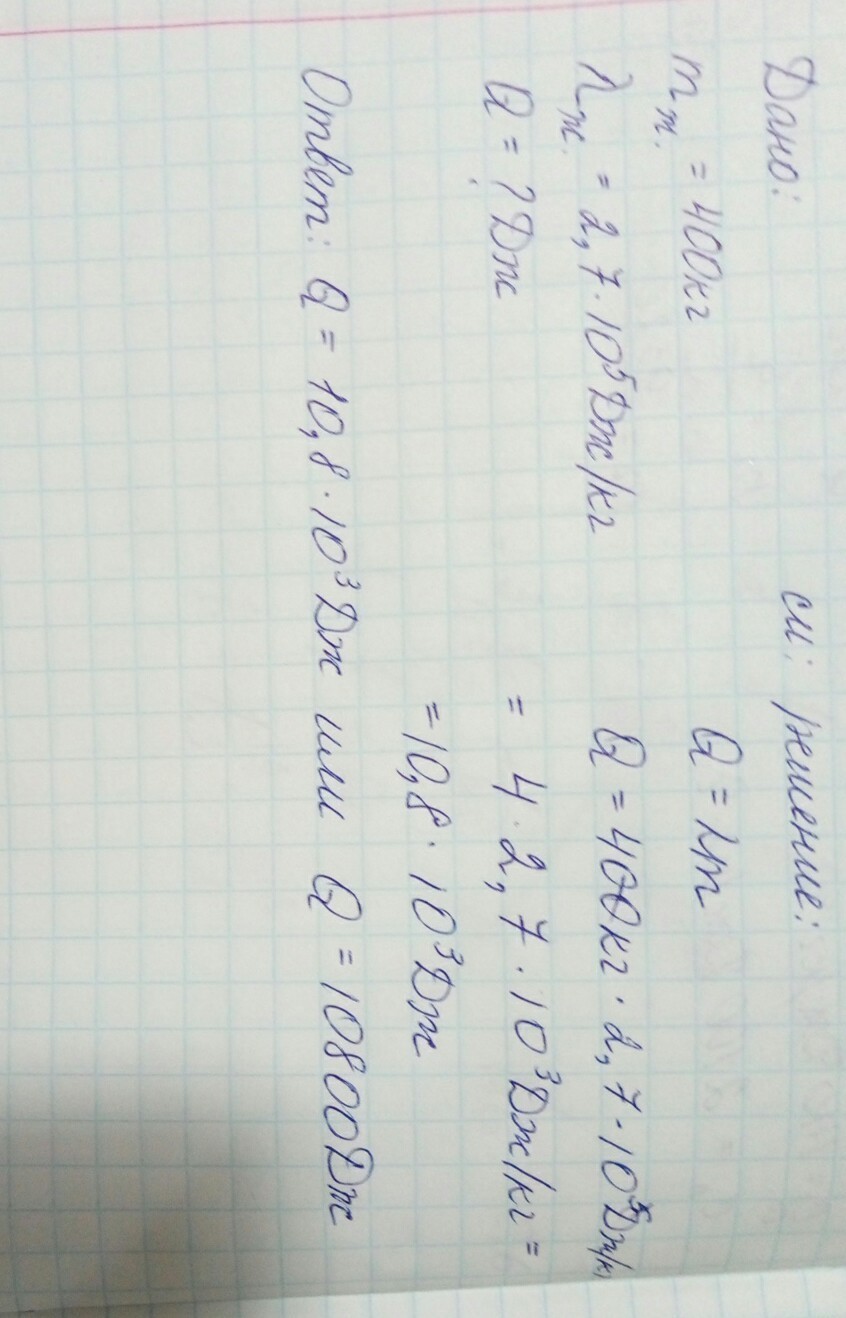 Дано:
mж. = 400кг
λж. = 2,7·10⁵Дж/кг
Q = ? Дж
си: решение:
Q = λm
Q = 400кг · 2,7·10⁵Дж/кг
= 4·2,7·10³Дж/кг =
= 10,8·10³Дж
Ответ: Q = 10,8·10³Дж или Q = 10800Дж